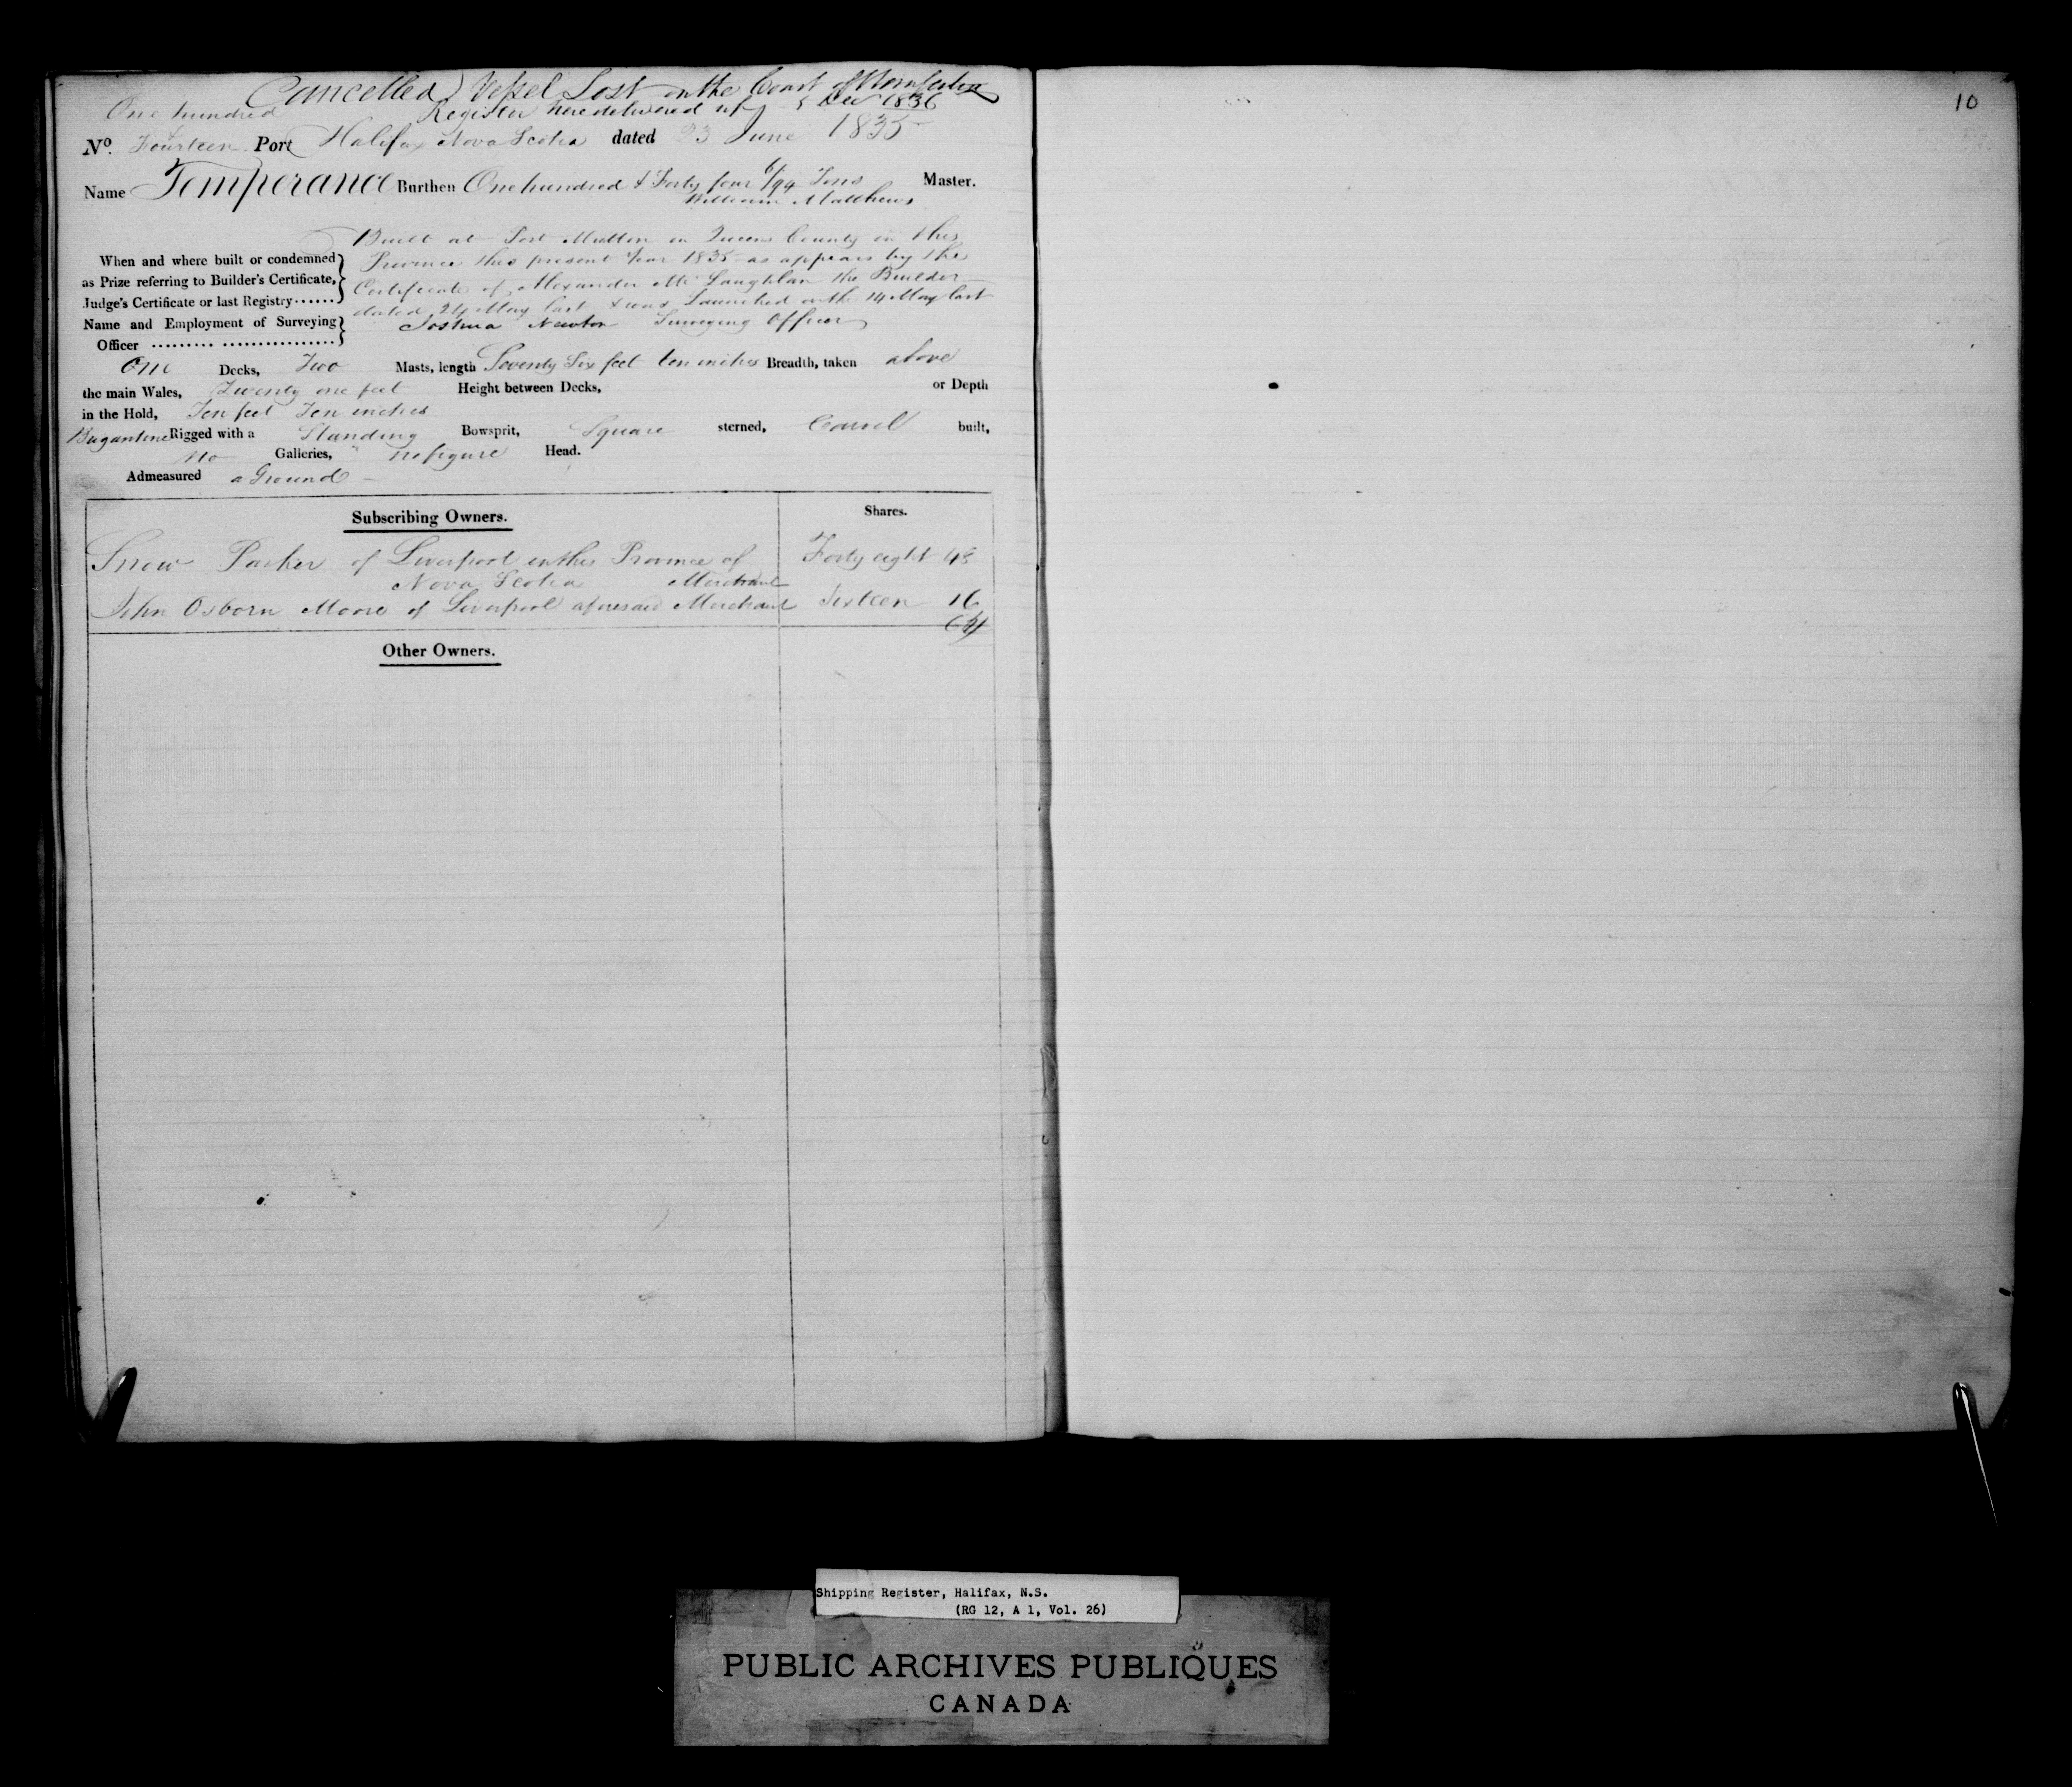 Cancelled Vessel Lost on the Coast of
Register here delivered up 5 Dec 1836
One hundred
&
No. Fourteen Port Halifax Nova Scotia dated 23 June 1835
Name Temperance Burthen One hundred & Forty four 6/94 Tons Master.
William Matthews
When and where built or condemned
as Prize referring to Builder's Certificate,
Judge's Certificate or last Registry......
Built at Port Mutton in Queens County in this
Province this present Year 1835 as appears by the
Certificate of Alexander Mc Laughlan the Builder
dated 24 May last & was Launched on the 14 May last
Name and Employment of Surveying
Officer ......... ................
Joshua Newton Surveying Officer
One Decks, Two Masts, length Seventy Six feet ten inches Breadth, taken above
the main Wales, Twenty one feet Height between Decks, or Depth
in the Hold, Ten feet Ten inches
Brigantine Rigged with a Standing Bowsprit, Square sterned, Carvel built,
No Galleries, no figure Head.
Admeasured a Ground
Subscribing Owners. Shares.
Snow Parker of Liverpool in this Province of Forty eight 48
Nova Scotia Merchant
John Osborn Moore of Liverpool aforesaid Merchant Sixteen 16
64
Other Owners.
10
Shipping Register, Halifax, N.S.
(RG 12, A 1, Vol. 26)
PUBLIC ARCHIVES PUBLIQUES
CANADA